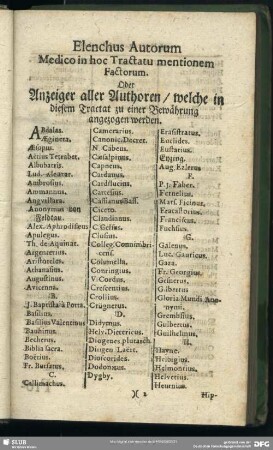 Elenchus Autorum
Medico in hoc Tractatu mentionem
Factorum.
Oder
Anzeiger aller Authoren / welche in
diesem Tractat zu einer Bewährung
angezogen werden.
Æginera.
Æsopus.
Albohatris.
Ambrosius.
Ammannus.
Anguillara.
Anonymus von
Feldtau.
Apulegus.
Th. de Aquinat.
Argenterius.
Aristoteles.
Athanasius.
Augustinus.
Avicenna.
B.
J. Baptista à Porta.
Basilius.
Basilius Valentinus
Bauhinus.
Becherus.
Biblia sacra.
Boëtius.
Fr. Bursatus.
C.
Callimachus.
Camerarius.
Canonic. Decret.
N. Cabeus.
Cæsalpinus.
Capneus.
Cardanus.
Cardilucius.
Cartesius.
Cassianus Bass.
Cicero.
Claudianus.
C. Celsus.
Clusius.
Colleg. Connimbri-
cens.
Columella.
Conringius.
V. Cordus.
Crescentius.
Crollius.
Crügnerus.
D.
Didymus.
Helv. Dietericus.
Diogenes.
Diogen. Laërt.
Dioscorides.
Dodonæus.
Dygby.
Erasistratus.
Euclides.
Eustatius.
Etzing.
Aug. Etzlerus
F.
P. j. Faber.
Fernelius.
Mars. Ficinus.
Fracastorius.
Franciscus.
Fuchsius.
G.
Galenus.
Luc. Gauricus.
Gaza.
Fr. Georgius.
Gesnerus.
Gilbertus
Gloria Mundi Ano-
nymi.
Gremblius.
Guibertus.
Guilhelmus.
H.
Hayne.
Helmontius.
Helvetius.
Heurnius.
)( 2
Hip-
SLUB
gefördert von der
Deutschen Forschungsgemeinschaft